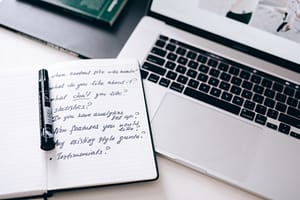 What do you like about it?
What don't you like?
Statistics?
Do you have analytics set up?
New features you would like?
Any existing style guide?
Testimonials?